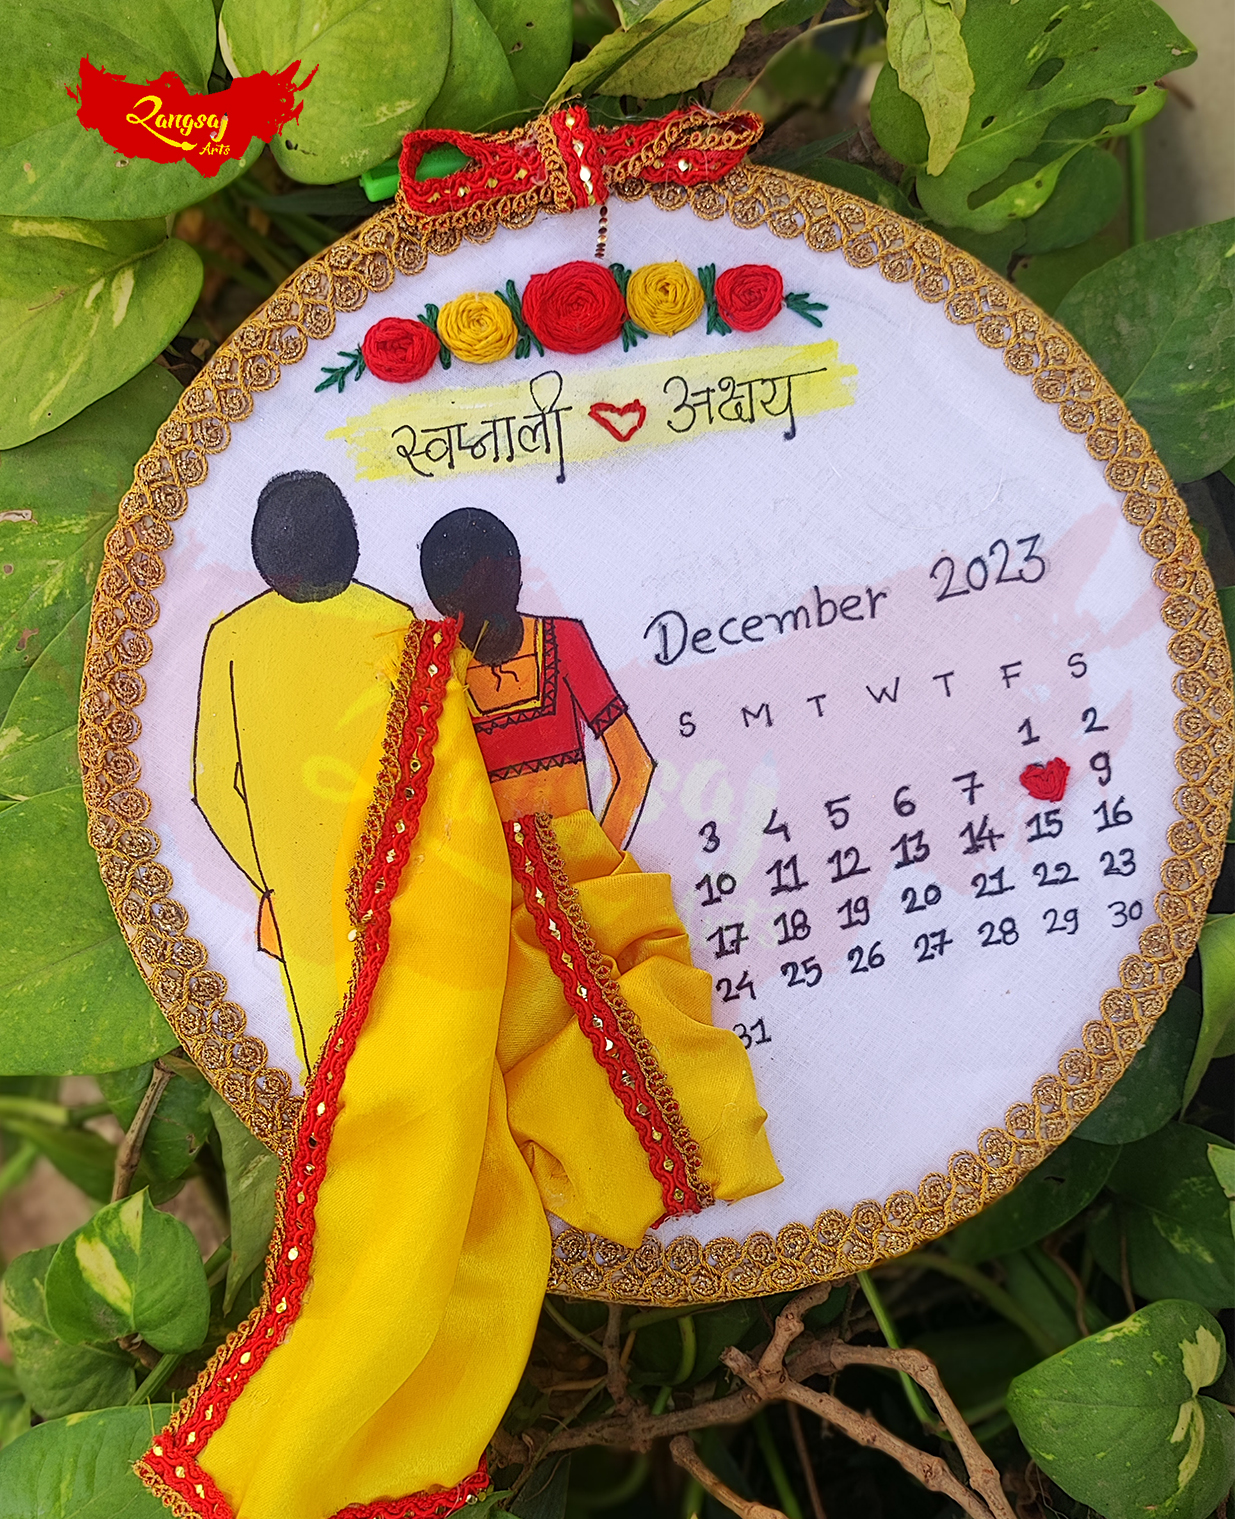 Rangsaj
Arts
स्वप्नाली अक्षय
December 2023
S M T W T F S
1 2
3 4 5 6 7 9
10 11 12 13 14 15 16
17 18 19 20 21 22 23
24 25 26 27 28 29 30
31